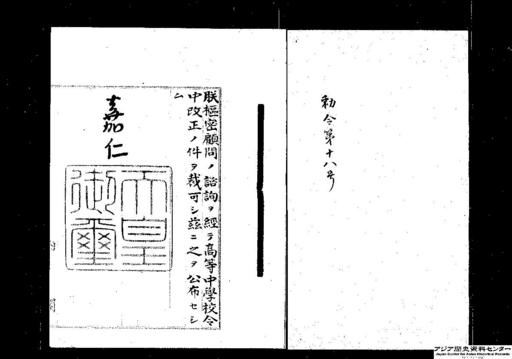 勅令第十八号
朕枢密顧問ノ諮詢ヲ経テ高等中學校令
中改正ノ件ヲ裁可シ茲ニ之ヲ公布セシ
ム
嘉仁
天皇
御璽
内閣
アジア歴史資料センター
Japan Center for Asian Historical Records